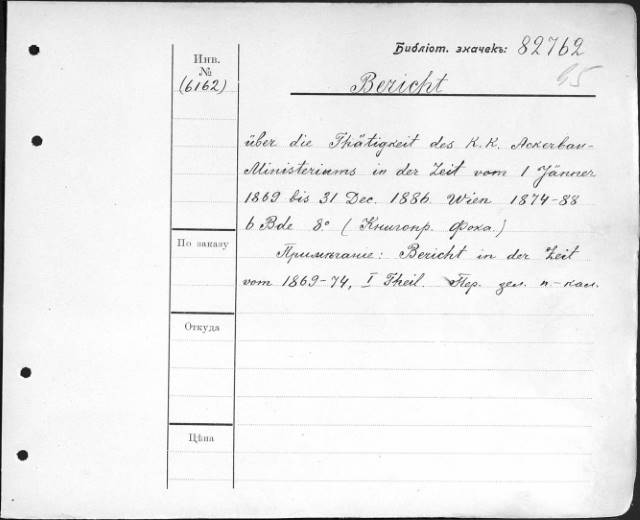 Библіот. значекъ: 82762
65
Инв.
№
(6162)
Bericht
über die Thätigkeit des K.K. Ackerbau-
Ministeriums in der Zeit vom 1 Jänner
1869 bis 31 Dec. 1886. Wien 1874-88
6 Bde 8.° (Книгопр. Фока.)
Примѣчаніе: Bericht in der Zeit
vom 1869-74, I Theil. Пер. зел. п-кал.
По заказу
Откуда
Цѣна